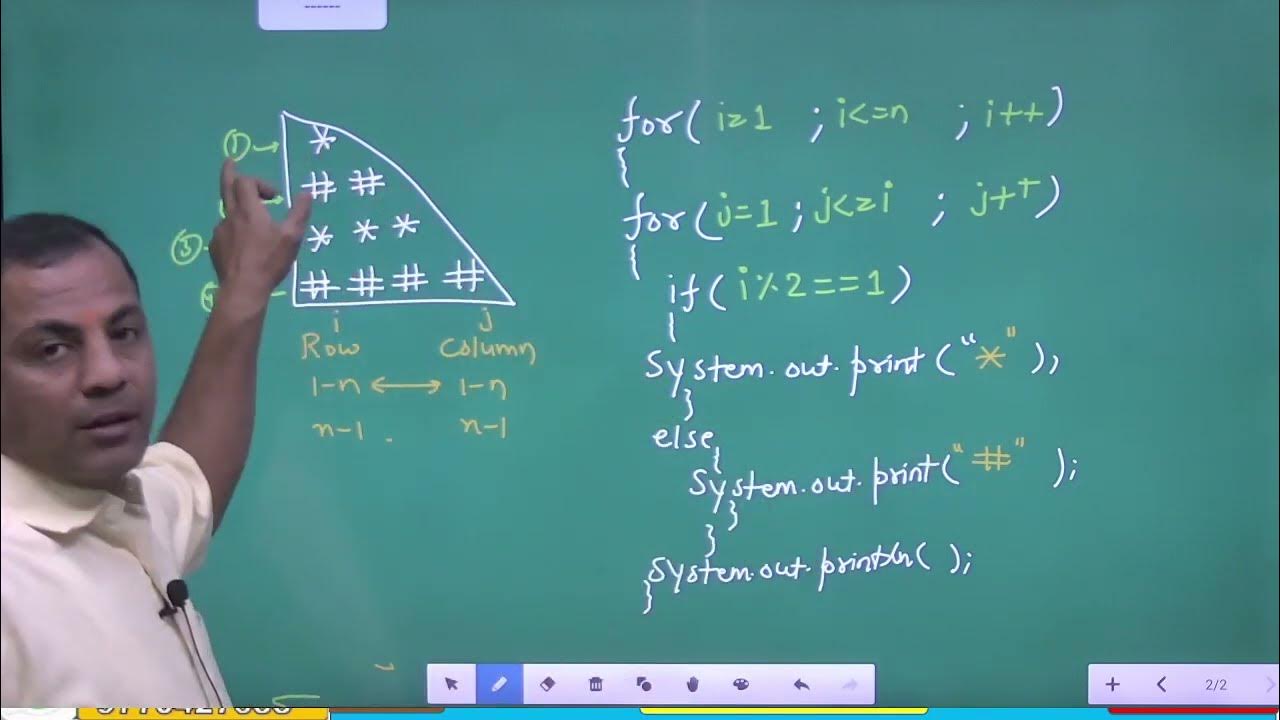 ------
① → *
# #
③ * * *
# # # #
i j
Row Column
1-n ↔ 1-n
n-1 . n-1
for( i=1 ; i<=n ; i++)
{
for( j=1 ; j<=i ; j++)
{
if( i%2==1)
{
System.out.print("*");
}
else
{
System.out.print("#");
}
}
System.out.println( );
}
2/2